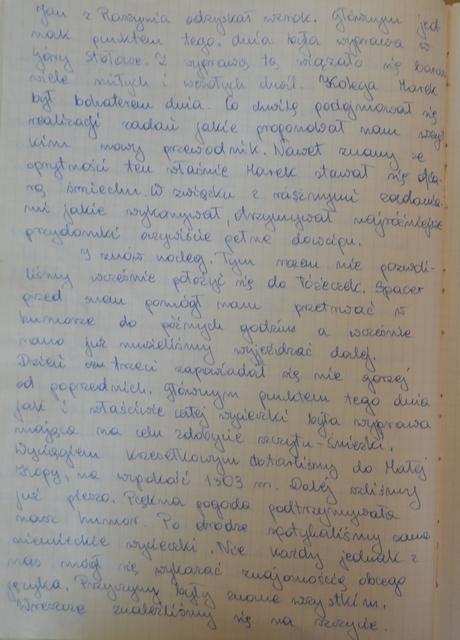 Jan z Raszynia odzyskał wzrok. Głównym jed
nak punktem tego dnia była wyprawa w
Góry Stołowe. Z wyprawą tą wiązało się
wiele miłych i wesołych chwil. Kolega Marek
był bohaterem dnia. Co chwilę podejmował się
realizacji zadań jakie proponował nam
nowy przewodnik. Nawet znany ze
sprytności ten właśnie Marek stawał się
śmiechu. W związku z zadania
mi jakie wykonywał, otrzymywał najróżniejsze
przydomki oczywiście pełne dowcipu.
I znów nocleg. Tym razem nie pozwoli-
liśmy wcześnie położyć się do łóżeczek. Spacer
przed snem pomógł nam przetrwać w
humorze do późnych godzin a wcześnie
rano już musieliśmy wyjeżdżać dalej.
Dzień trzeci zapowiadał się nie gorzej
od poprzednich. Głównym punktem tego dnia
jak i właściwie całej wycieczki była wyprawa
mająca na celu zdobycie szczytu - Śnieżki.
Wyciągiem krzesełkowym dotarliśmy do Małej
Kopy, na wysokość 1303 m. Dalej szliśmy
już pieszo. Piękna pogoda podtrzymywała
nasz humor. Po drodze spotykaliśmy same
niemieckie wycieczki. Nie każdy jednak z
nas mógł się wykazać znajomością obcego
języka. Przyczyny były znane wszystkim.
Wreszcie znaleźliśmy się na szczycie.